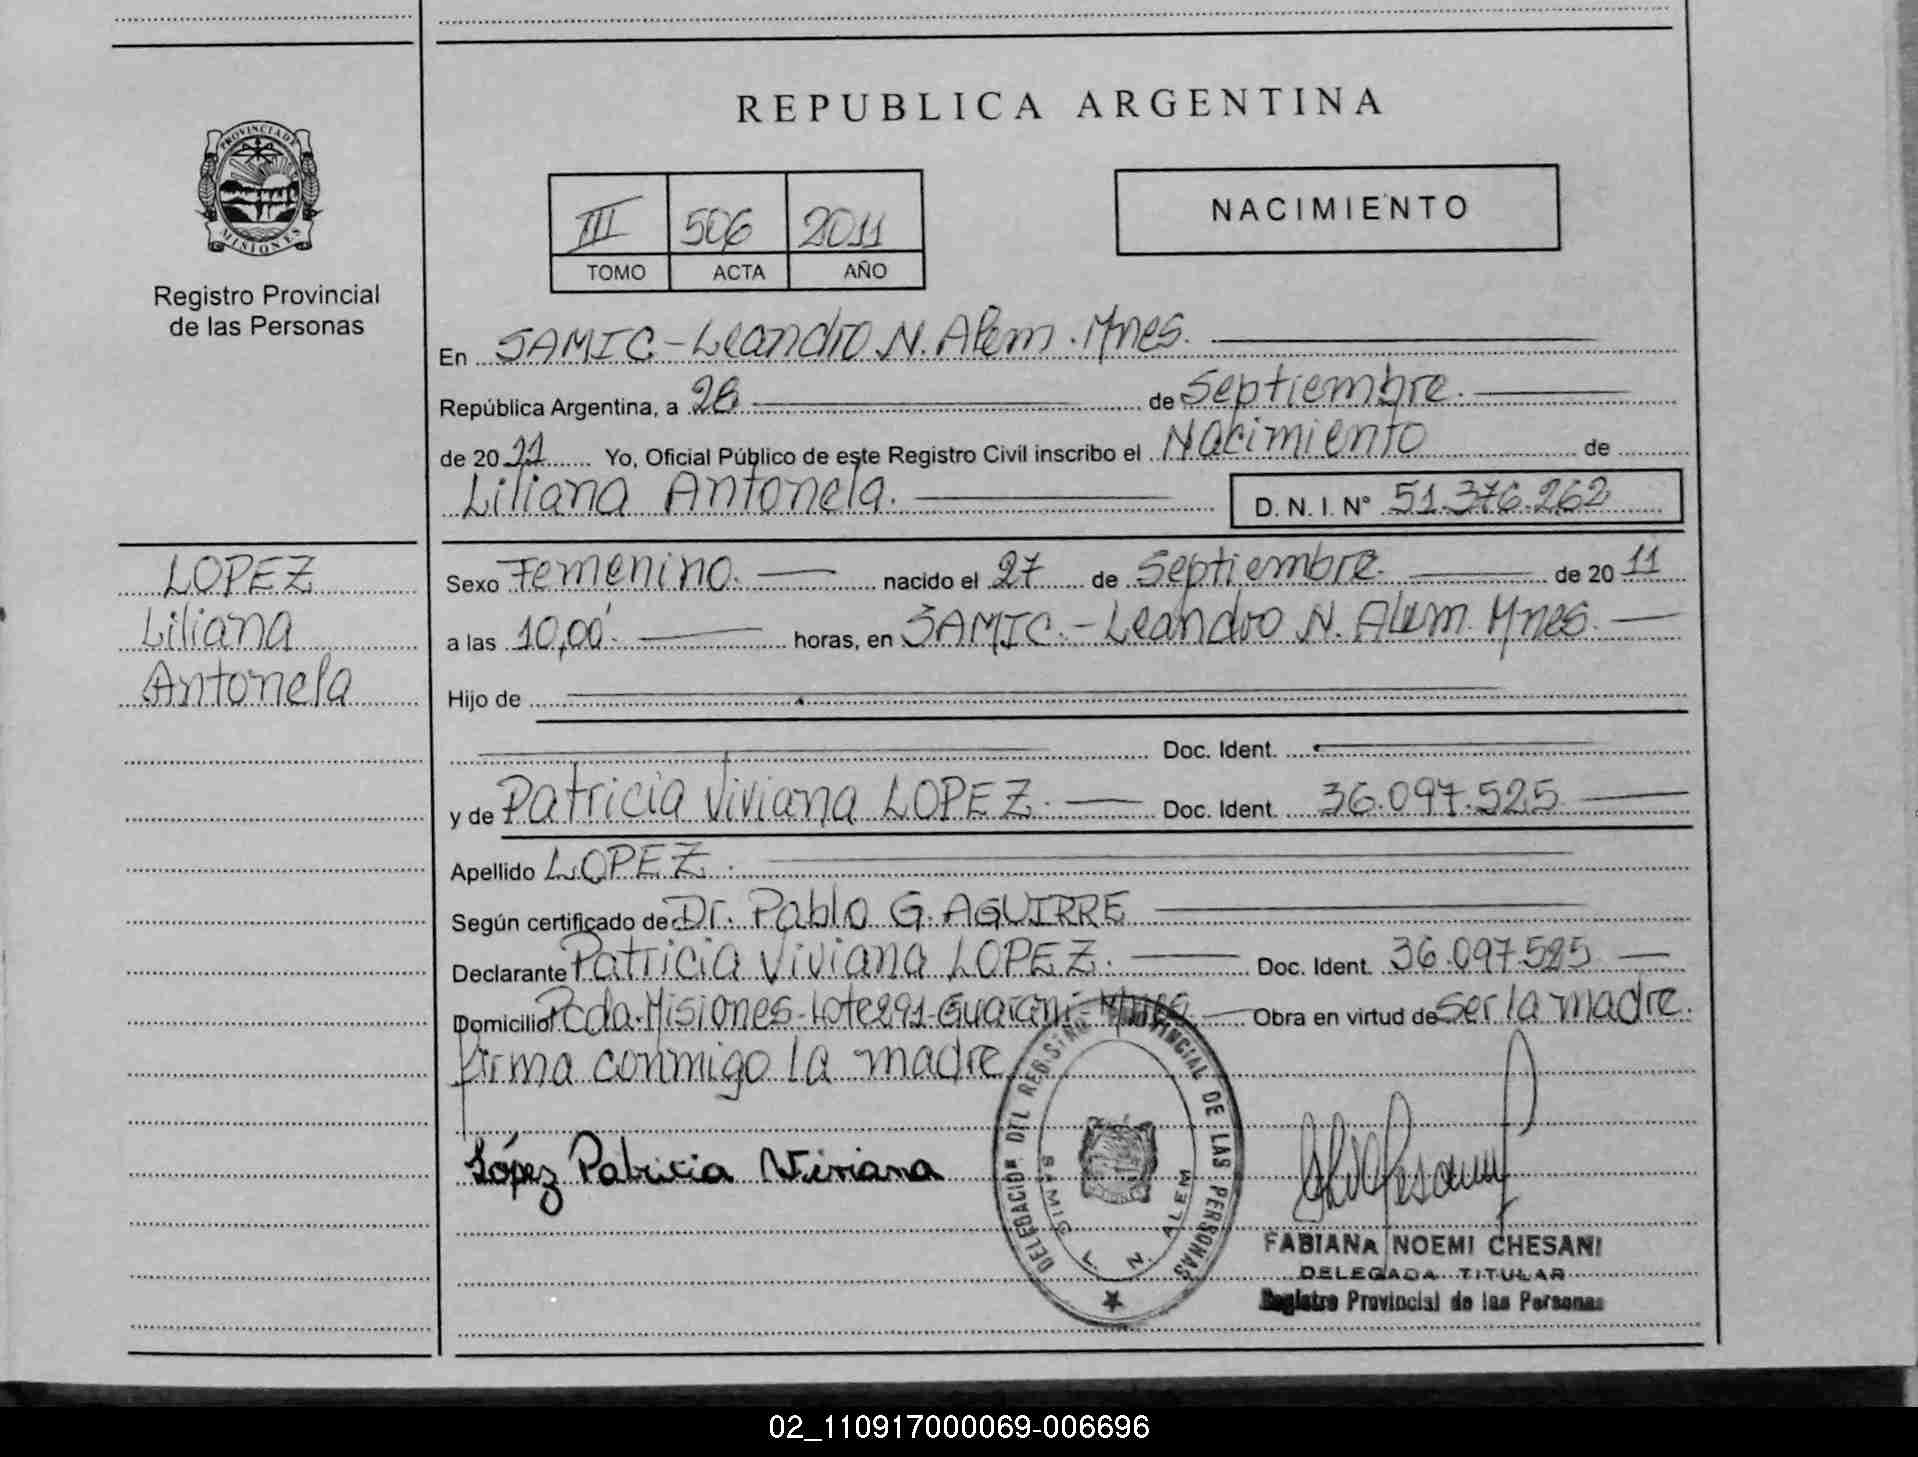 PROVINCIA DE
MISIONES
Registro Provincial
de las Personas
LOPEZ
Liliana
Antonela
REPUBLICA ARGENTINA
III 506 2011
TOMO ACTA AÑO
NACIMIENTO
En SAMIC - Leandro N. Alem. Mnes.
República Argentina, a 28 de Septiembre.
de 2011 Yo, Oficial Público de este Registro Civil inscribo el Nacimiento de
Liliana Antonela. D. N. I. N° 51.376.262
Sexo Femenino. nacido el 27 de Septiembre. de 2011
a las 10,00. horas, en SAMIC. - Leandro N. Alem. Mnes.
Hijo de
Doc. Ident.
y de Patricia Viviana LOPEZ. Doc. Ident. 36.097.525
Apellido LOPEZ.
Según certificado de Dr. Pablo G. AGUIRRE
Declarante Patricia Viviana LOPEZ. Doc. Ident. 36.097.525
Domicilio Pcda. Misiones - Lote 291 - Guarani - Mnes Obra en virtud de ser la madre.
firma conmigo la madre
López Patricia Viviana
DELEGACION DEL REGISTRO PROVINCIAL DE LAS PERSONAS
L. N. ALEM
FABIANA NOEMI CHESANI
DELEGADA TITULAR
Registro Provincial de las Personas
02_110917000069-006696